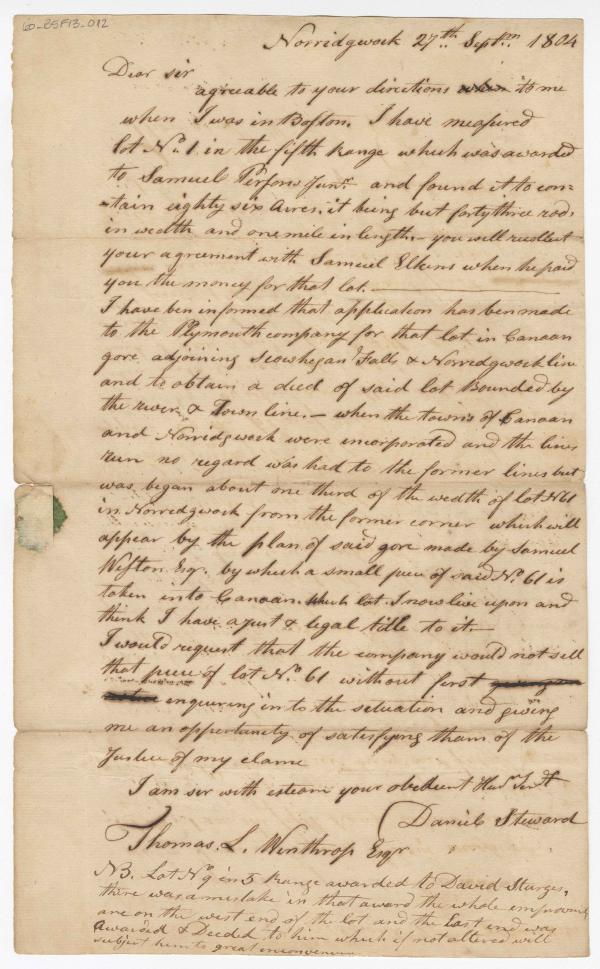 60-BSF13-012
Norridgwock 27th Septm 1804
Dear sir
agreeable to your directions to me
when I was in Boston. I have measured
lot No. 1 in the fifth Range which was awarded
to Samuel Junr. and found it to con=
-tain eighty six Acres, it being but forty three rods
in wedth and one mile in length. - you will recollect
your agreement with Samuel Elkins when he paid
you the money for that lot.
I have ben informed that application has ben made
to the Plymouth company for that lot in Canaan
gore adjoining Scowhegan Falls & Norridgwock line
and to obtain a deed of said lot Bounded by
the river & Town line. - when the towns of Canaan
and Norridgwock were incorporated and the lines
run no regard was had to the former lines but
was began about one third of the wedth of lot No 61
in Norridgwock from the former corner which will
appear by the plan of said gore made by Samuel
Weston Esq. by which a small piece of said No. 61 is
taken into Canaan. which lot I now live upon and
think I have a just & legal title to it. -
I would request that the company would not sell
that piece of lot No. 61 without first
enquiring in to the setuation and giving
me an opportunity of satisfying tham of the
Justice of my clame
I am ser with esteam your obedient Huml Servt
Daniel Steward
Thomas. L. Winthrop Esqr
NB. Lot No 9 in 5 Range awarded to David Sturges,
there was a mistake in that award the whole
are on the west end of the lot and the East end was
awarded & Deeded to him which if not altered will
subject him to great inconvenience